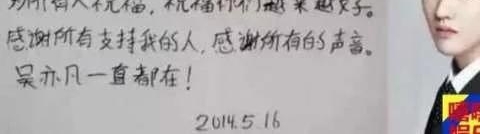 为所有人祝福，祝福你们越来越好。
感谢所有支持我的人，感谢所有的声音。
吴亦凡一直都在！
2014.5.16